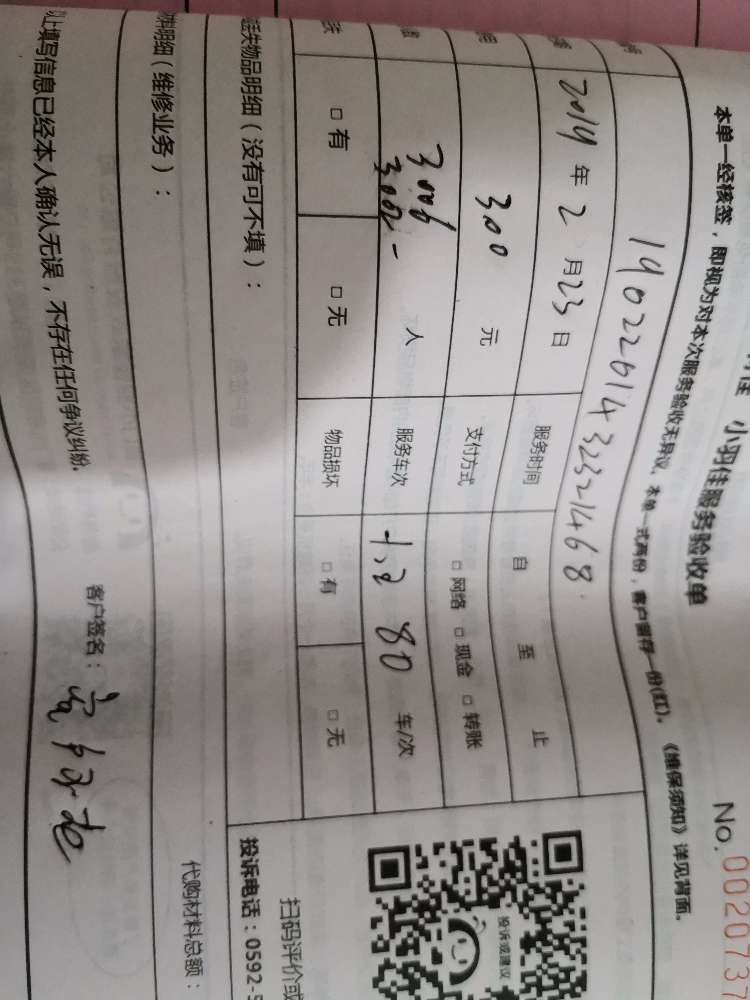 小羽佳服务验收单
No.0020737
本单一经核签，即视为对本次服务验收无异议，本单一式两份，客户留存一份(红)。《维保须知》详见背面。
19022614323221468
2019年2月23日 服务时间 自 至 止
300 元 支付方式 □网络 □现金 □转账
人 服务车次 80 车/次
□有 □无 物品损坏 □有 □无
失物品明细（没有可不填）：
明细（维修业务）：
代购材料总额：
上填写信息已经本人确认无误，不存在任何争议纠纷。
客户签名：
投诉或建议
扫码评价或
投诉电话：0592-5